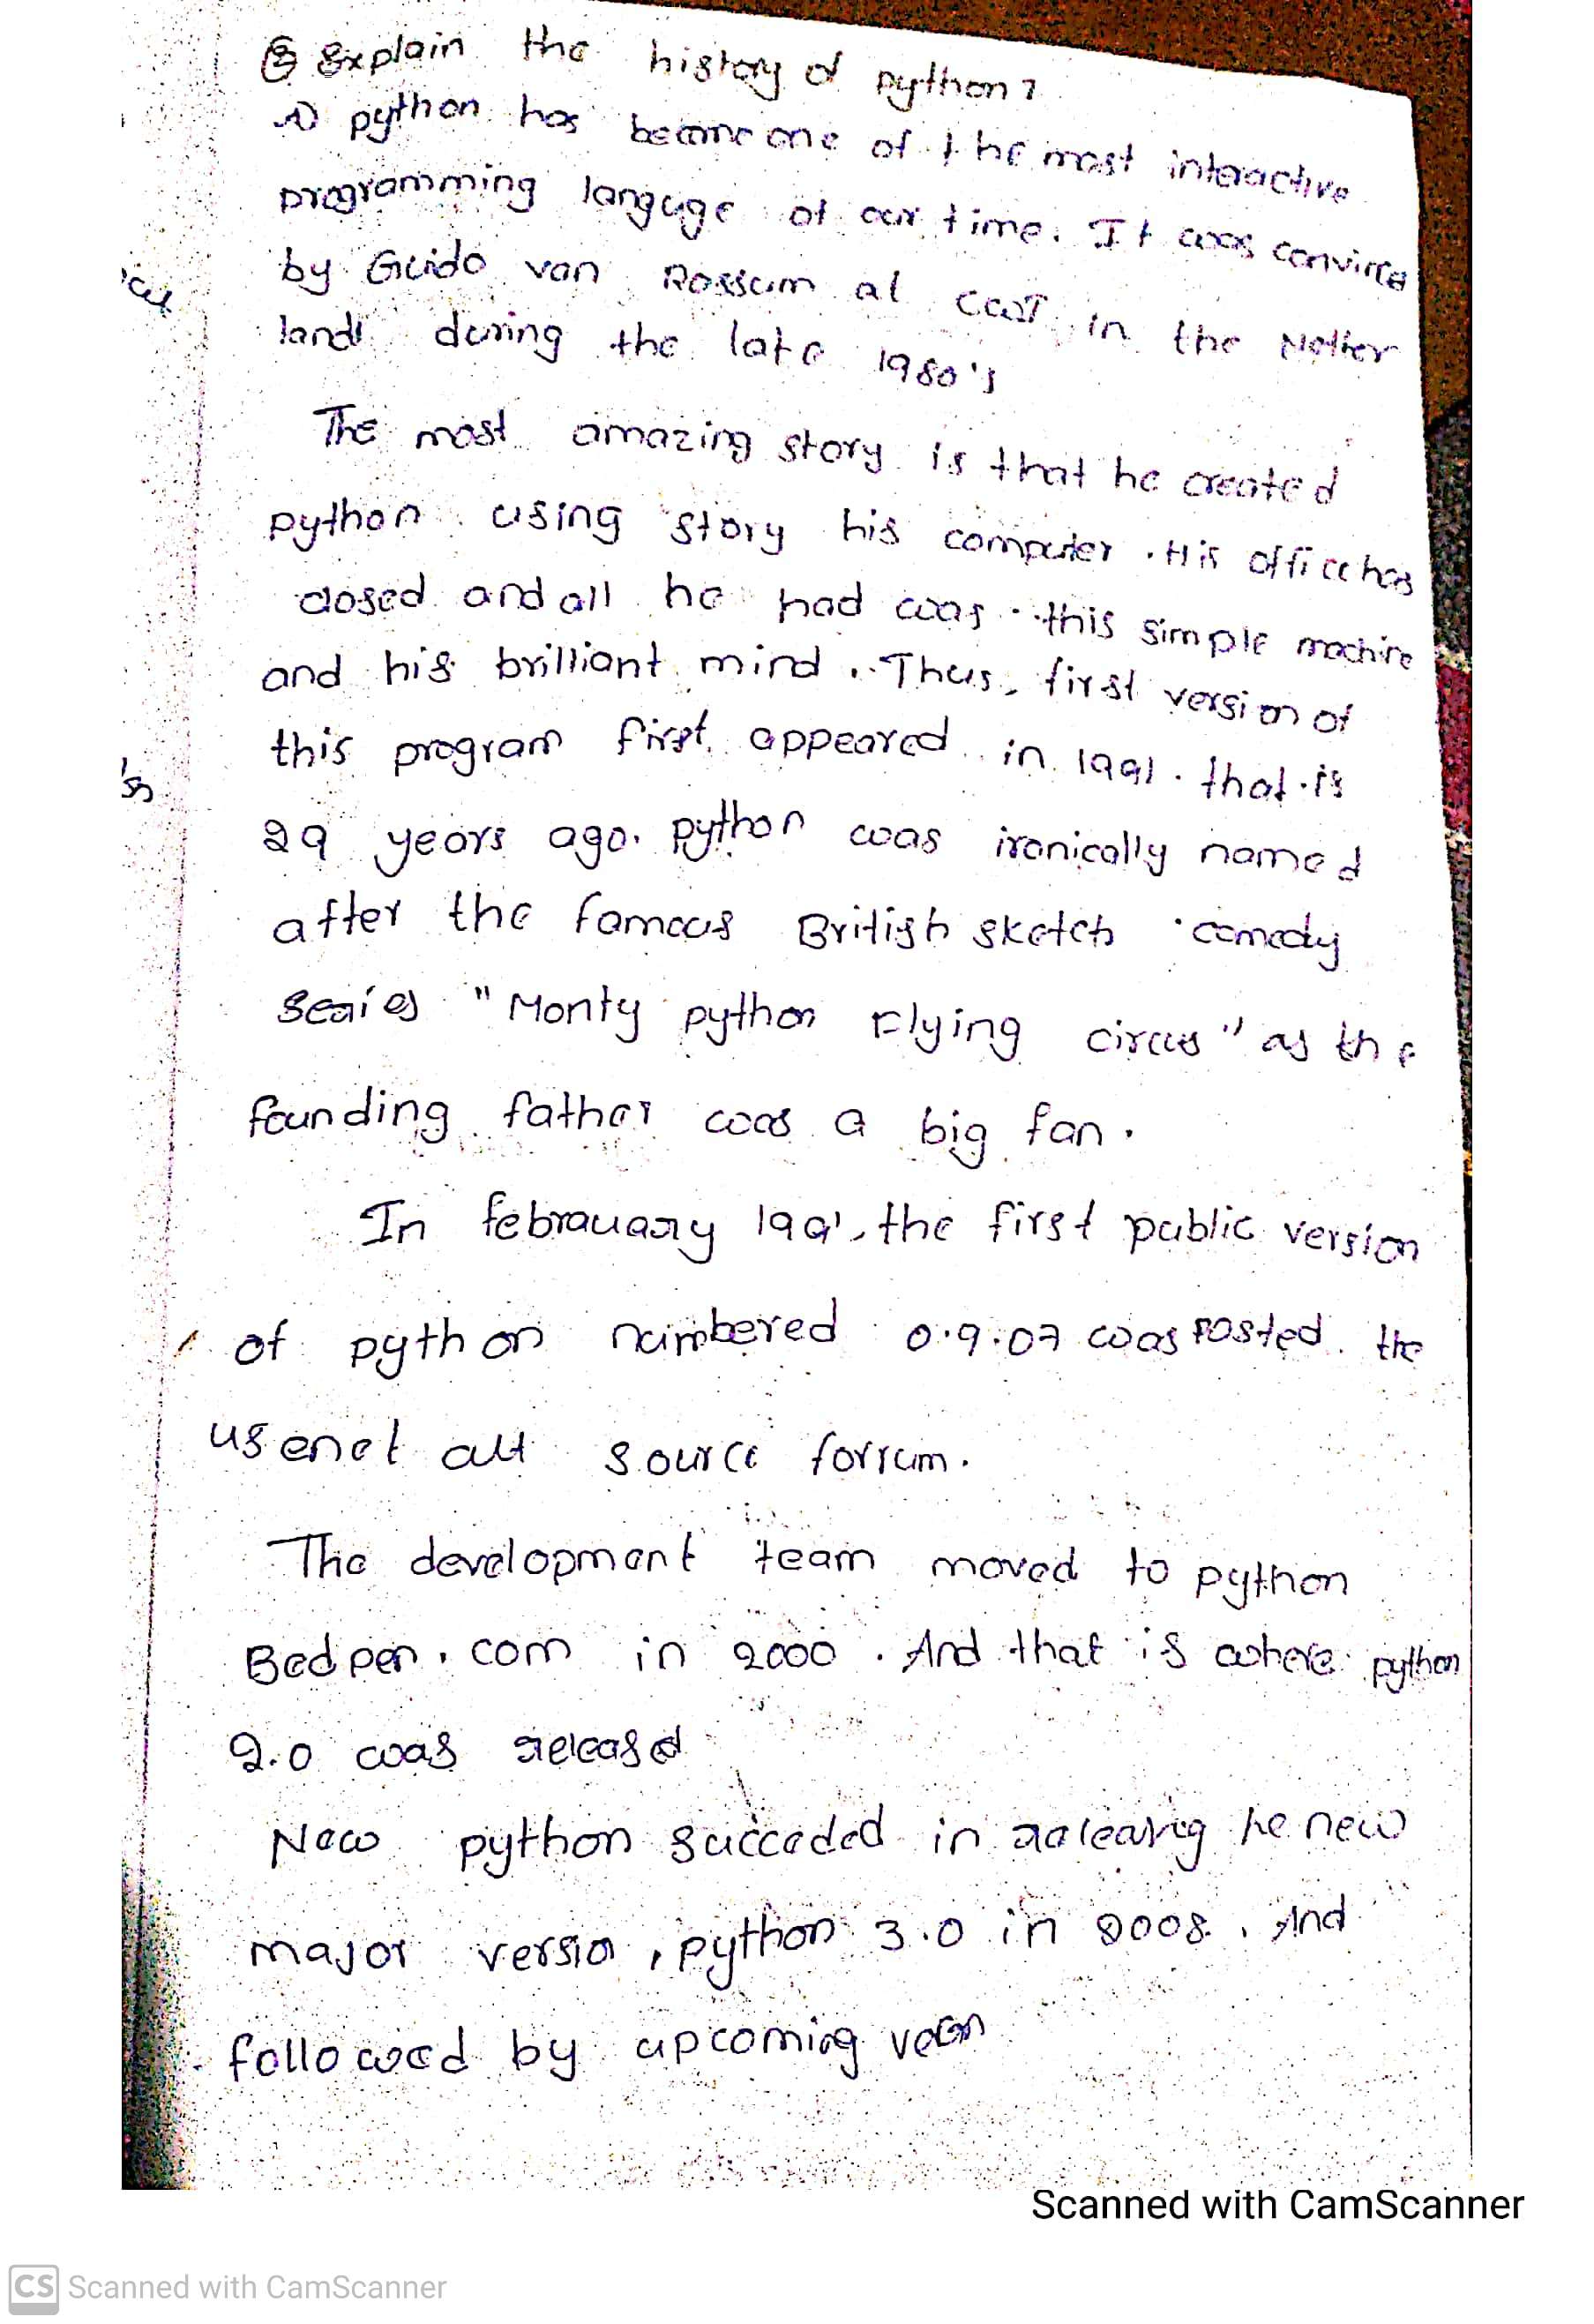 Q Explain the history of python?
A) python has become one of the most interactive
programming languge of our time. It was convirca
by Guido van Rossum at CWI in the Nether
lands during the late 1980's
The most amazing story is that he created
python using story his computer . His office has
closed and all he had was this simple machine
and his brilliant mind . Thus, first version of
this program first appeared in 1991 . that is
29 years ago. python was ironically named
after the famous British sketch comedy
Series "Monty python Flying circus" as the
founding father was a big fan.
In febrauary 1991, the first public version
of python numbered 0.9.07 was posted the
usenet alt source forrum.
The development team moved to python
Bedpen.com in 2000 . And that is where python
2.0 was released
New python succeded in he new
major version , python 3.0 in 2008 . And
followed by upcoming
Scanned with CamScanner
CS Scanned with CamScanner